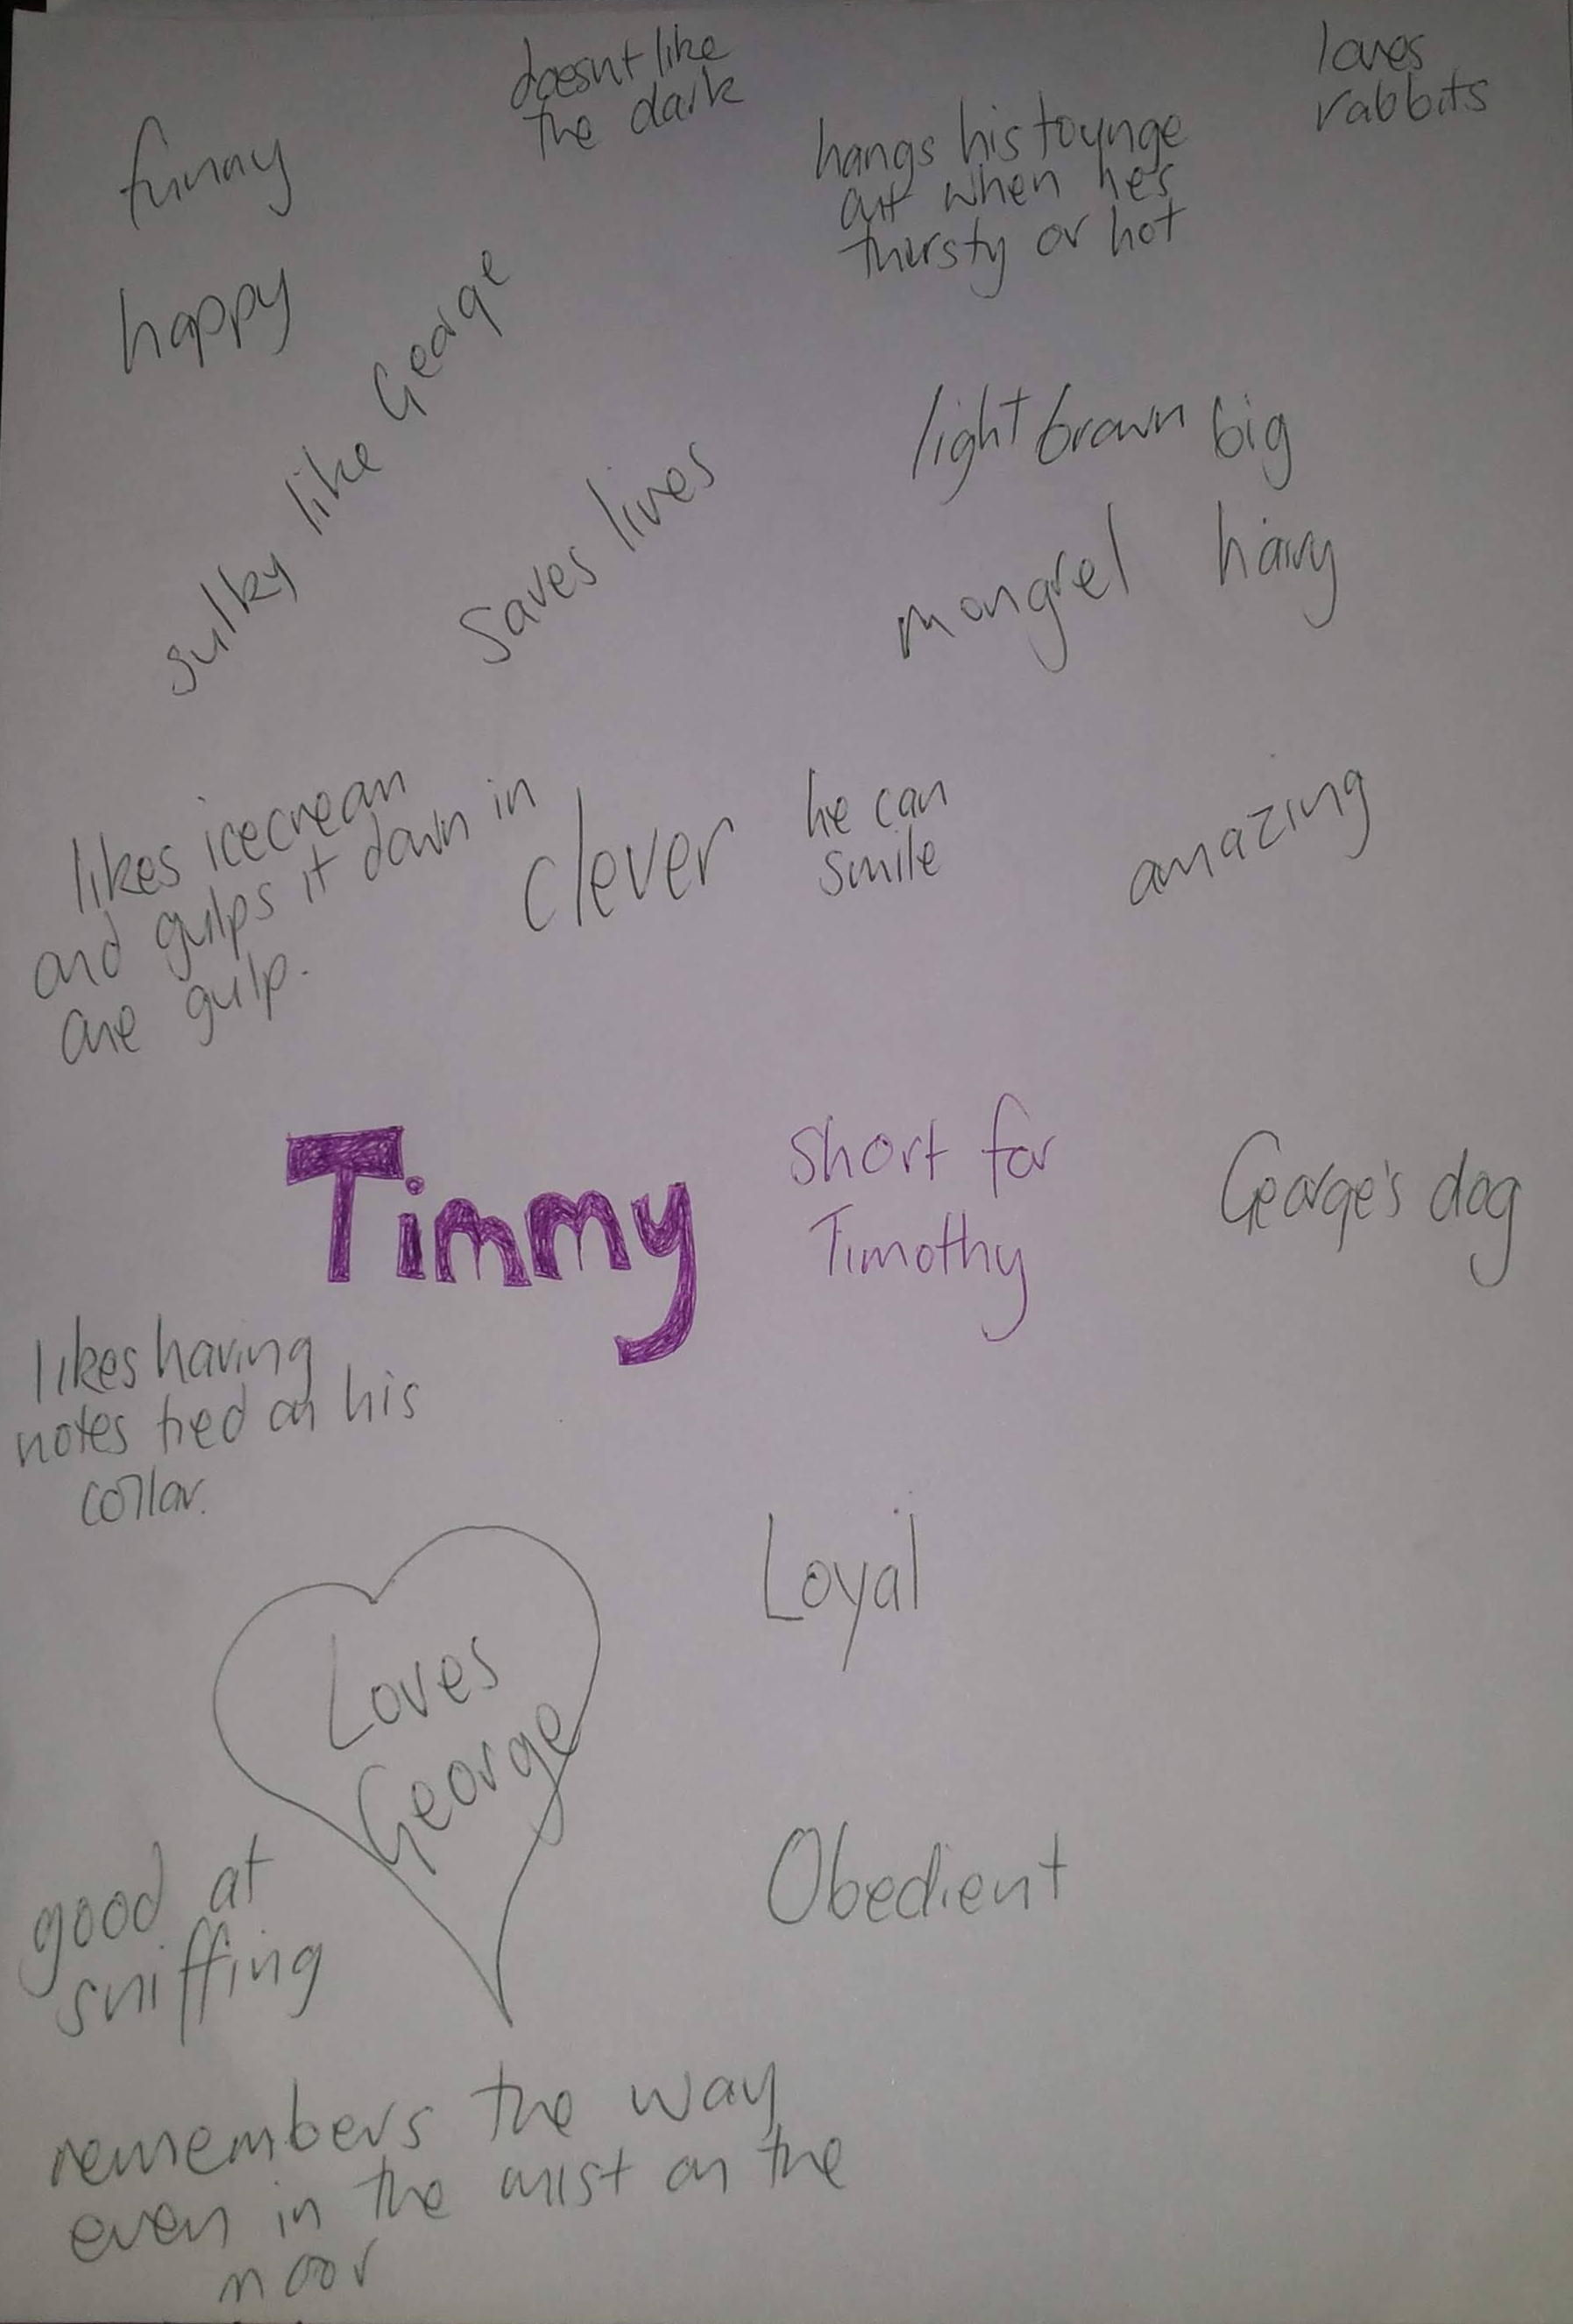 doesnt like
the dark
loves
rabbits
funny
hangs his tounge
out when hes
thirsty or hot
happy
sulky like George
saves lives
light brown big
mongrel hairy
likes icecream
and gulps it down in
one gulp.
clever
he can
smile
amazing
Timmy
short for
Timothy
George's dog
likes having
notes tied on his
collar.
Loyal
Loves
George
Obedient
good at
sniffing
remembers the way
even in the mist on the
moor